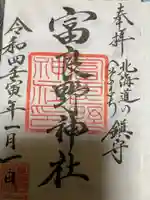 奉拝
北海道の
へそまち
鎮守
富良野神社
令和四壬寅年一月一日